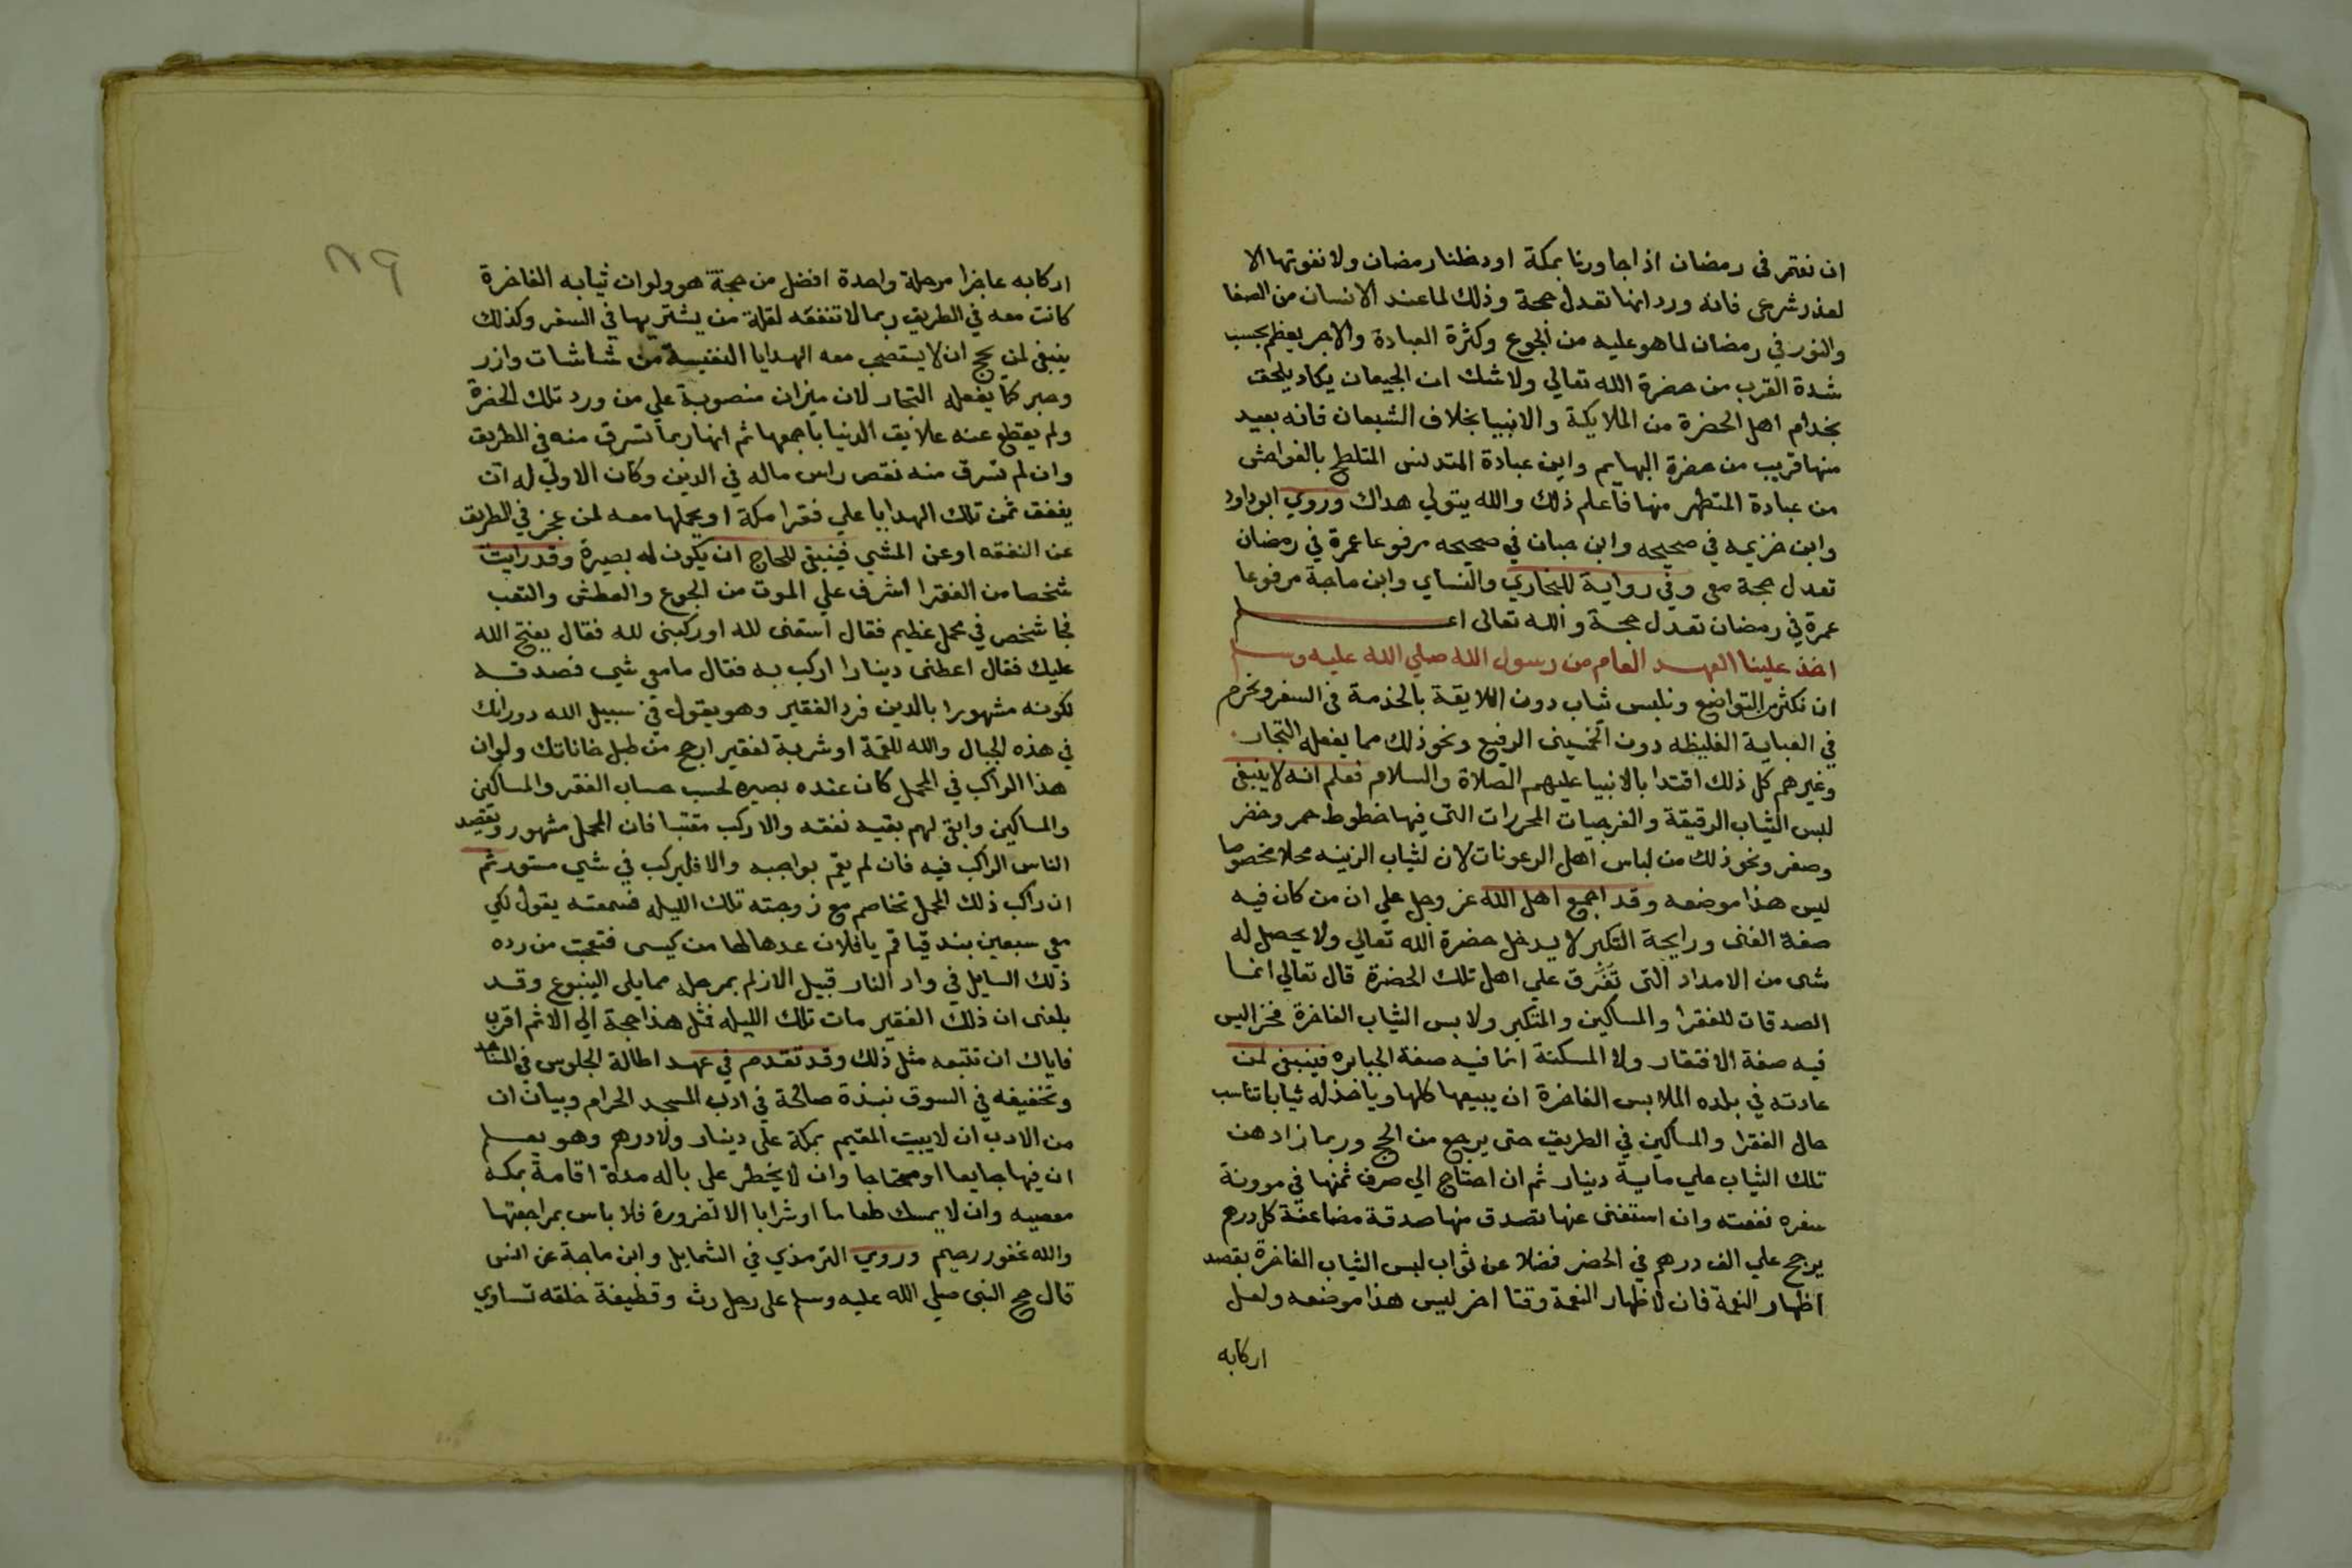 ان نعتمر في رمضان اذا جاورنا بمكة او دخلنا رمضان ولا نفوتها الا
لعذر شرعي فانه ورد انها تعدل حجة وذلك لما عند الانسان من الصفا
والنور في رمضان لما هو عليه من الجوع وكثرة العبادة والاجر يعظم بحسب
شدة القرب من حضرة الله تعالي ولا شك ان الجيعان يكاد يلحق
بخدام اهل الحضرة من الملايكة والانبيا بخلاف الشبعان فانه بعيد
منها قريب من حضرة البهايم واين عبادة المتدنس المتلطخ بالفواحش
من عبادة المتطهر منها فاعلم ذلك والله يتولي هداك وروي ابوداود
وابن خزيمه في صحيحه وابن حبان في صحيحه مرفوعا عمرة في رمضان
تعدل حجة معي وفي رواية للبخاري والنساي وابن ماجة مرفوعا
عمرة في رمضان تعدل حجة والله تعالى اعلم
اخذ علينا العهد العام من رسول الله صلي الله عليه وسلم
ان نكثر من التواضع ونلبس ثياب دون اللايقة بالخدمة في السفر ونحرم
في العباية الغليظه دون الرفيع ونحو ذلك مما يفعله التجار
وغيرهم كل ذلك اقتدا بالانبيا عليهم الصلاة والسلام فعلم انه لا ينبغي
لبس الثياب الرقيقة والفرجيات المحررات التي فيها خطوط حمر وخضر
وصفر ونحو ذلك من لباس اهل الرعونات لان لثياب الزينه محلا مخصوصا
ليس هذا موضعه وقد اجمع اهل الله عز وجل علي ان من كان فيه
صفة الغنى ورايحة التكبر لا يدخل حضرة الله تعالي ولا يحصل له
شي من الامداد التي تفرق علي اهل تلك الحضرة قال تعالي انما
الصدقات للفقرا والمساكين والمتكبر ولابس الثياب الفاخرة فخرا ليس
فيه صفة الافتقار ولا المسكنة انما فيه صفة الجبابره فينبغي لمن
عادته في بلده الملابس الفاخرة ان يبيعها كلها وياخذ له ثيابا تناسب
حال الفقرا والمساكين في الطريق حتى يرجع من الحج وربما زاد
تلك الثياب علي ماية دينار ثم ان احتاج الي صرف ثمنها في موونة
سفره نفعته وان استغنى عنها تصدق منها صدقة مضاعفة كل درهم
يرجح علي الف درهم في الحضر فضلا عن ثواب لبس الثياب الفاخرة بقصد
اظهار النعمة فان لاظهار النعمة وقتا اخر ليس هذا موضعه ولعل
اركابه
٨٩
اركابه عاجزا مرحلة واحدة افضل من حجة هو ولوان ثيابه الفاخرة
كانت معه في الطريق ربما لا تنفقه لقلة من يشتريها في السفر وكذلك
ينبغي لمن يحج ان لا يستصحب معه الهدايا النفيسة من شاشات وازر
وحبر كما يفعله التجار لان ميزان منصوبة علي من ورد تلك الحضرة
ولم يقطع عنه علايق الدنيا باجمعها ثم انها ربما تسرق منه في الطريق
وان لم تسرق منه نقص راس ماله في الدين وكان الاولي له ان
ينفق ثمن تلك الهدايا علي فقرا مكة او يحملها معه لمن عجز في الطريق
عن النفقه اوعن المشي فينبغي للحاج ان يكون له بصيرة وقد رايت
شخصا من الفقرا اشرف علي الموت من الجوع والعطش والتعب
فجا شخص في محمل عظيم فقال اسقني لله او ركبني لله فقال يفتح الله
عليك فقال اعطني دينارا اركب به فقال مامعي شي فصدقه
لكونه مشهورا بالدين فرد الفقير وهو يقول في سبيل الله دورانك
في هذه الجبال والله للقمة او شربة لفقير ارجح من طبل خاناتك ولوان
هذا الراكب في المحمل كان عنده بصيره لحسب حساب الفقر والمساكين
والمساكين وابقى لهم بقيه نفقه والا ركب مقتبا فان المحمل مشهور وتقصد
الناس الراكب فيه فان لم يقم بواجبه والا فليركب في شي مستور ثم
ان راكب ذلك المحمل تخاصم مع زوجته تلك الليله فسمعته يقول لكي
معي سبعين بندقيا قم يا فلان عدها لها من كيسي فتعجبت من رده
ذلك السايل في واد النار قبيل الازلم بمرحله مما يلي الينبوع وقد
بلغنى ان ذلك الفقير مات تلك الليله فمثل هذا حجة الي الاثم اقرب
فاياك ان تتبعه مثل ذلك وقد تقدم في عهد اطالة الجلوس في المساجد
وتخفيفه في السوق نبذة صالحة في ادب المسجد الحرام وبيان ان
من الادب ان لا يبيت المقيم بمكة علي دينار ولا درهم وهو يعلم
ان فيها جايعا او محتاجا وان لا يخطر علي باله مدة اقامة بمكه
معصيه وان لا يمسك طعاما او شرابا الا لضرورة فلا باس بمراجعتها
والله غفور رحيم وروي الترمذي في الشمايل وابن ماجة عن انس
قال حج النبي صلي الله عليه وسلم علي رحل رث وقطيفة خلقه تساوي